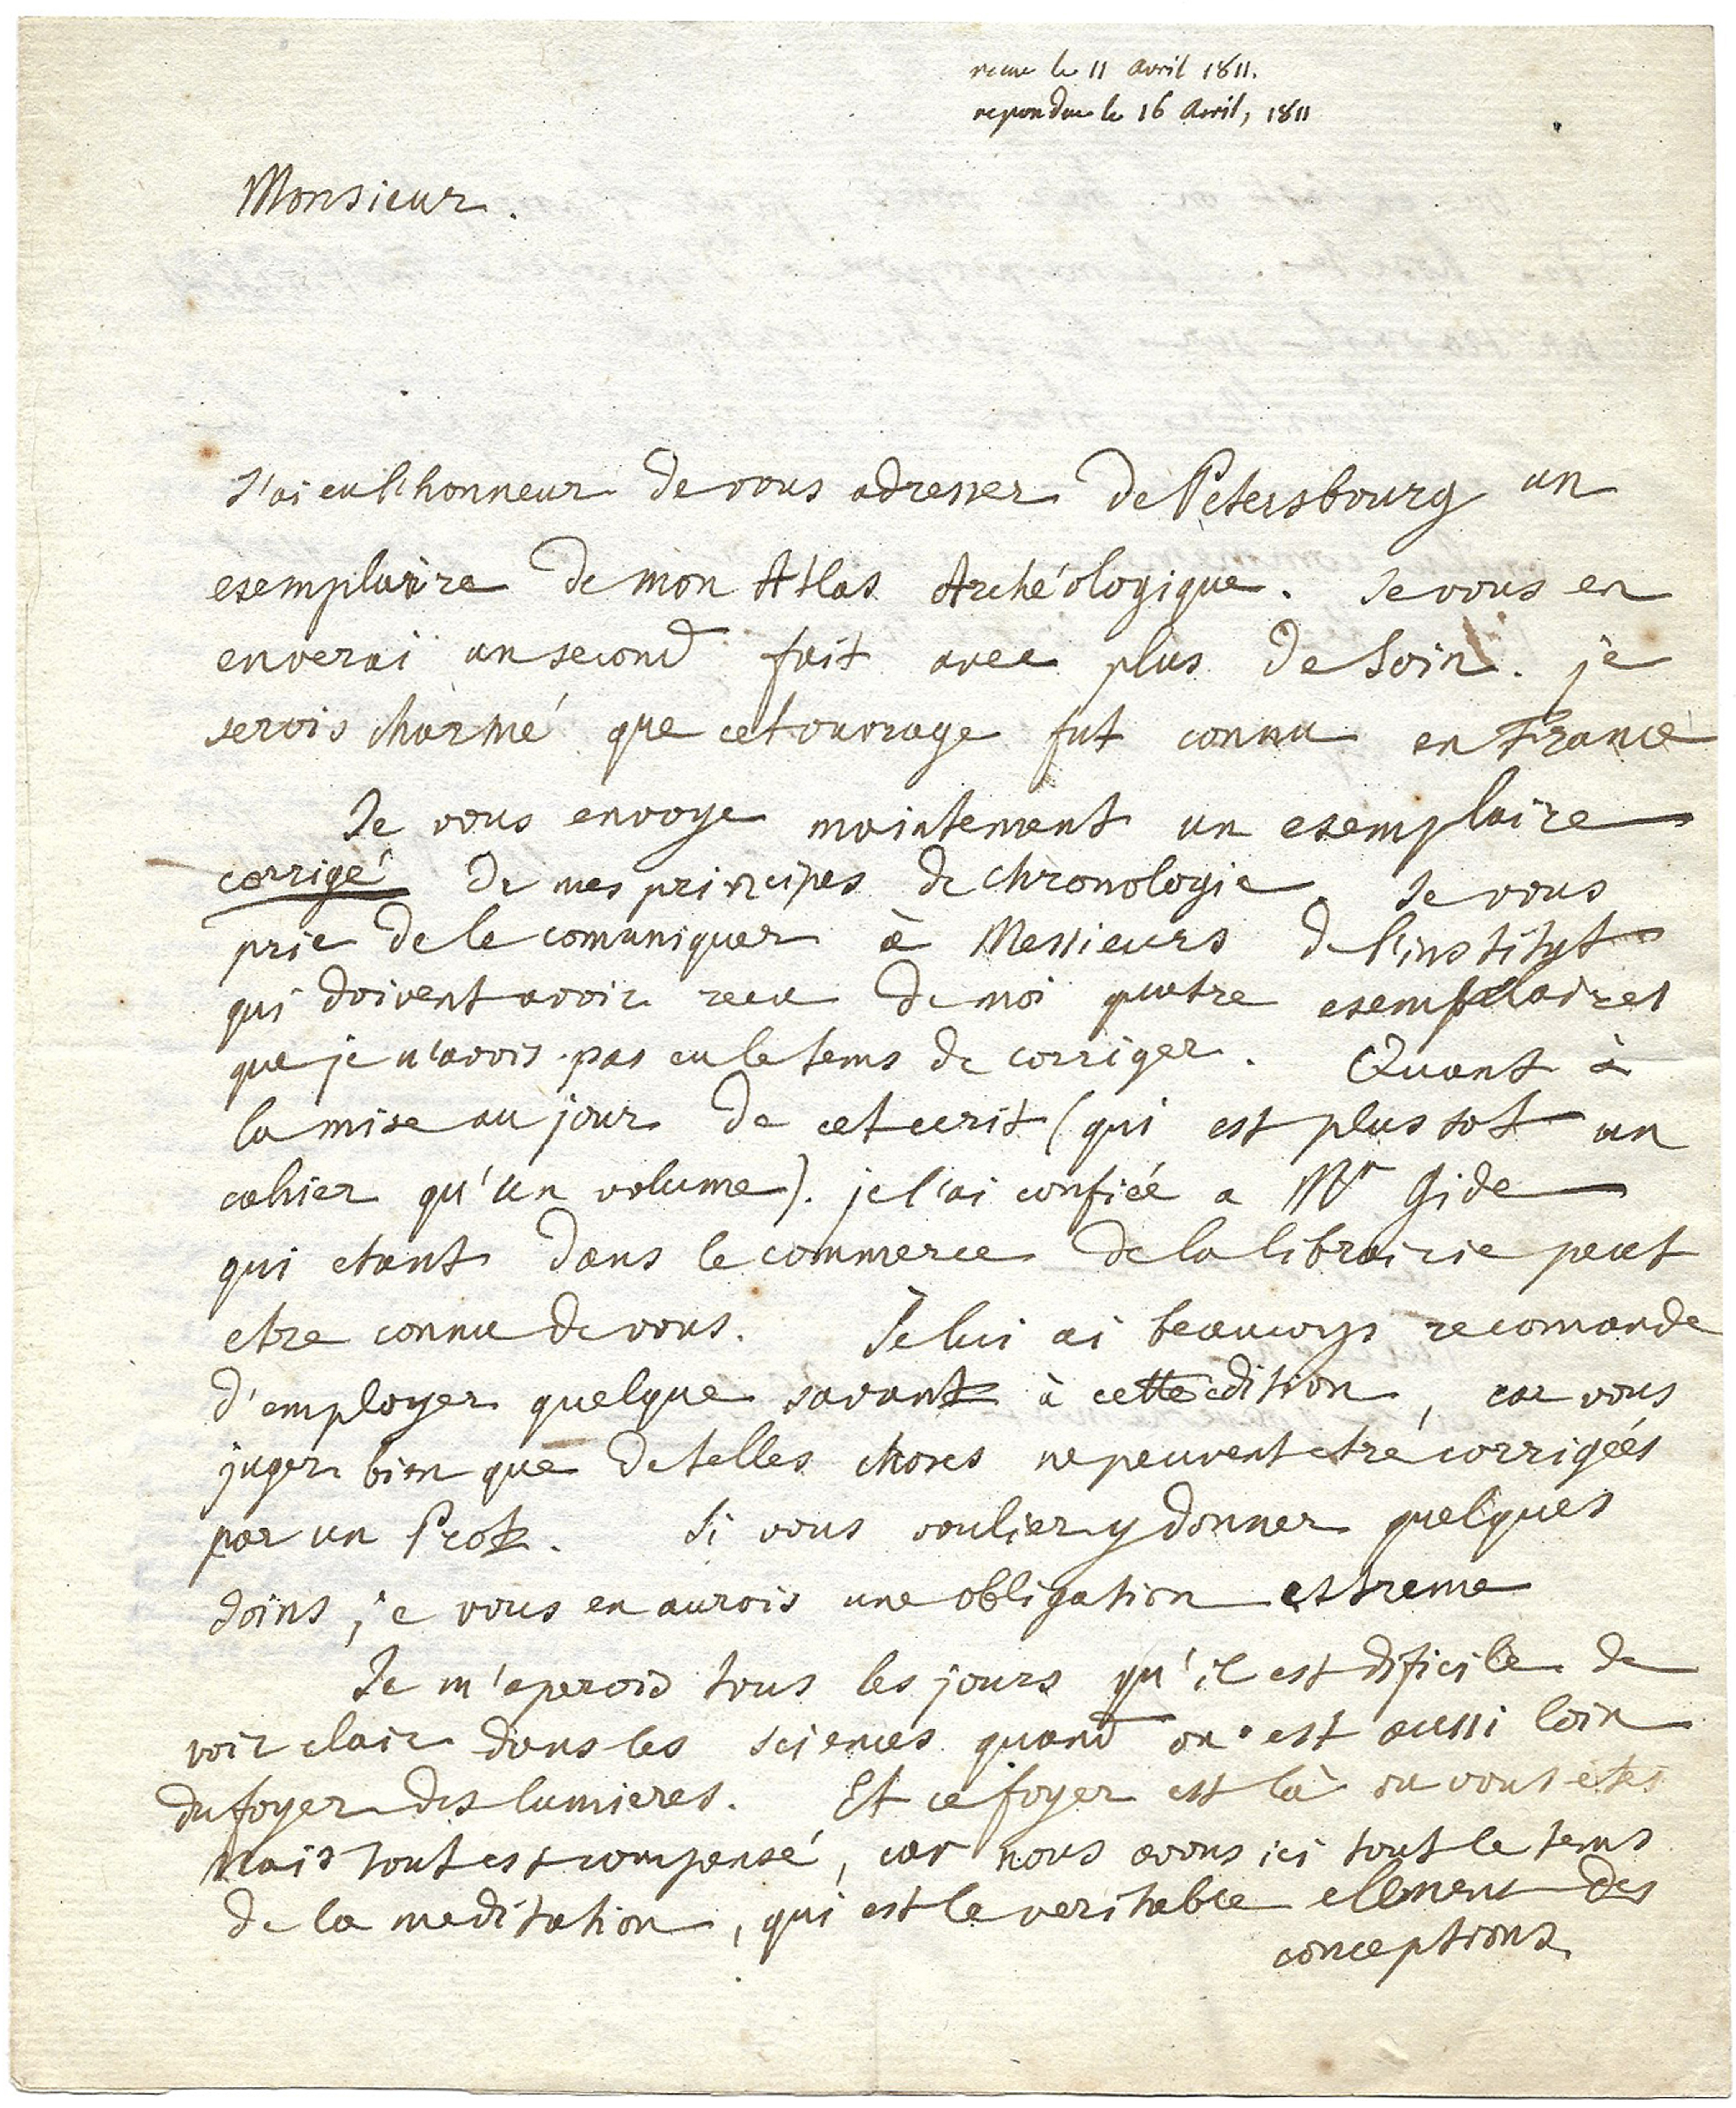 recue le 11 avril 1811.
repondue le 16 Avril, 1811
Monsieur.
J'ai eu l'honneur de vous adresser de Petersbourg un
esemplaire de mon Atlas Archéologique. Je vous en
enverai un second fait avec plus de soin. je
serois charmé que cet ouvrage fut connu en France
Je vous envoye maintenant un esemplaire
corrigé de mes principes de chronologie Je vous
prie de le comuniquer à Messieurs de l'institut
qui doivent avoir recu de moi quatre esemplaires
que je n'avois pas eu le tems de corriger. Quant à
la mise au jour de cet ecrit (qui est plus tot un
cahier qu'un volume). je l'ai confiée a Mr Gide
qui etant dans le commerce de la librairie peut
etre connu de vous. Je lui ai beaucoup recomande
d'employer quelque savant à cette edition, car vous
juger bien que de telles choses ne peuvent etre corrigées
par un Prote. Si vous voulier y donner quelques
soins, je vous en aurois une obligation estreme
Je m'apercois tous les jours qu'il est dificile de
voir clair dans les sciences quand on est aussi loin
du foyer des lumieres. Et ce foyer est là ou vous étes
Mais tout est compensé, car nous avons ici tout le tems
de la meditation, qui est le veritable ellement des
conceptions.